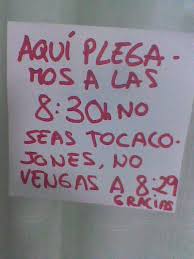 AQUÍ PLEGA-
MOS A LAS
8:30h NO
SEAS TOCACO-
JONES, NO
VENGAS A 8:29
GRACIAS